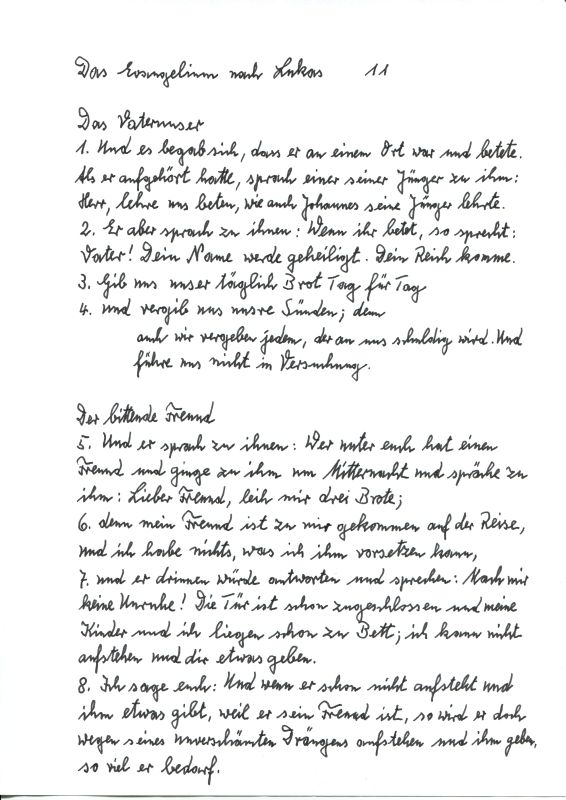 Das Evangelium nach Lukas 11
Das Vaterunser
1. Und es begab sich, dass er an einem Ort war und betete.
Als er aufgehört hatte, sprach einer seiner Jünger zu ihm:
Herr, lehre uns beten, wie auch Johannes seine Jünger lehrte.
2. Er aber sprach zu ihnen: Wenn ihr betet, so sprecht:
Vater! Dein Name werde geheiligt. Dein Reich komme.
3. Gib uns unser täglich Brot Tag für Tag
4. und vergib uns unsre Sünden; denn
auch wir vergeben jedem, der an uns schuldig wird. Und
führe uns nicht in Versuchung.
Der bittende Freund
5. Und er sprach zu ihnen: Wer unter euch hat einen
Freund und ginge zu ihm um Mitternacht und spräche zu
ihm: Lieber Freund, leih mir drei Brote;
6. denn mein Freund ist zu mir gekommen auf der Reise,
und ich habe nichts, was ich ihm vorsetzen kann,
7. und er drinnen würde antworten und sprechen: Mach mir
keine Unruhe! Die Tür ist schon zugeschlossen und meine
Kinder und ich liegen schon zu Bett; ich kann nicht
aufstehen und dir etwas geben.
8. Ich sage euch: Und wenn er schon nicht aufsteht und
ihm etwas gibt, weil er sein Freund ist, so wird er doch
wegen seines unverschämten Drängens aufstehen und ihm geben,
so viel er bedarf.